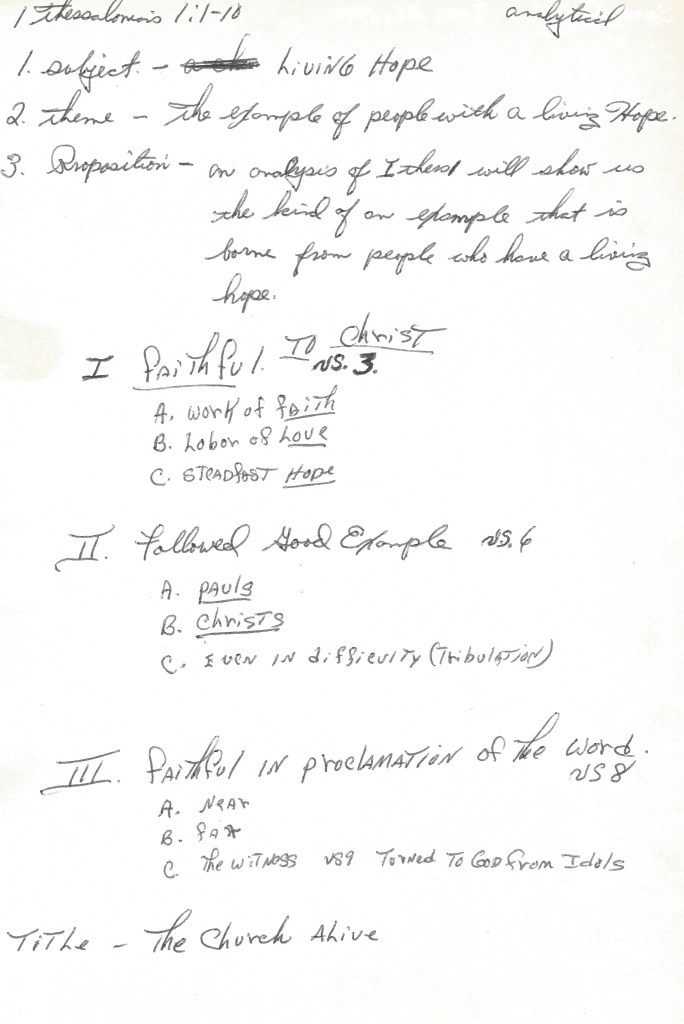 1 Thessalonians 1:1-10 analytical
1. subject. - Living Hope
2. theme - the example of people with a living Hope.
3. Proposition - an analysis of I thess 1 will show us
the kind of an example that is
borne from people who have a living
hope.
I Faithful To Christ
vs. 3.
A. Work of Faith
B. Labor of Love
C. Steadfast Hope
II. Followed Good Example vs. 6
A. Pauls
B. Christs
C. Even in difficulty (Tribulation)
III. Faithful in proclamation of the word.
vs 8
A. Near
B. Far
C. The witness vs 9 Turned To God from Idols
Title - The Church Alive